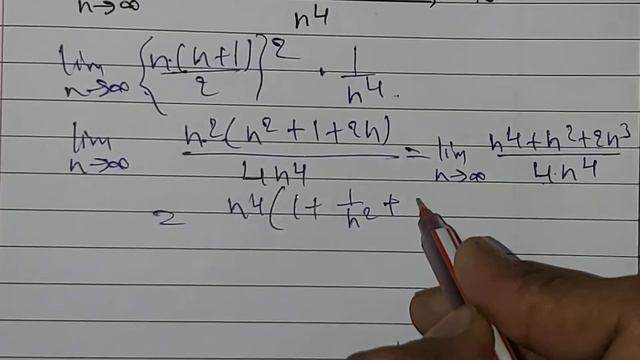 n→∞ n⁴
lim n→∞ {n·(n+1)/2}² · 1/n⁴.
lim n→∞ n²(n²+1+2n)/4n⁴ = lim n→∞ n⁴+n²+2n³/4·n⁴
= n⁴(1+ 1/n² +